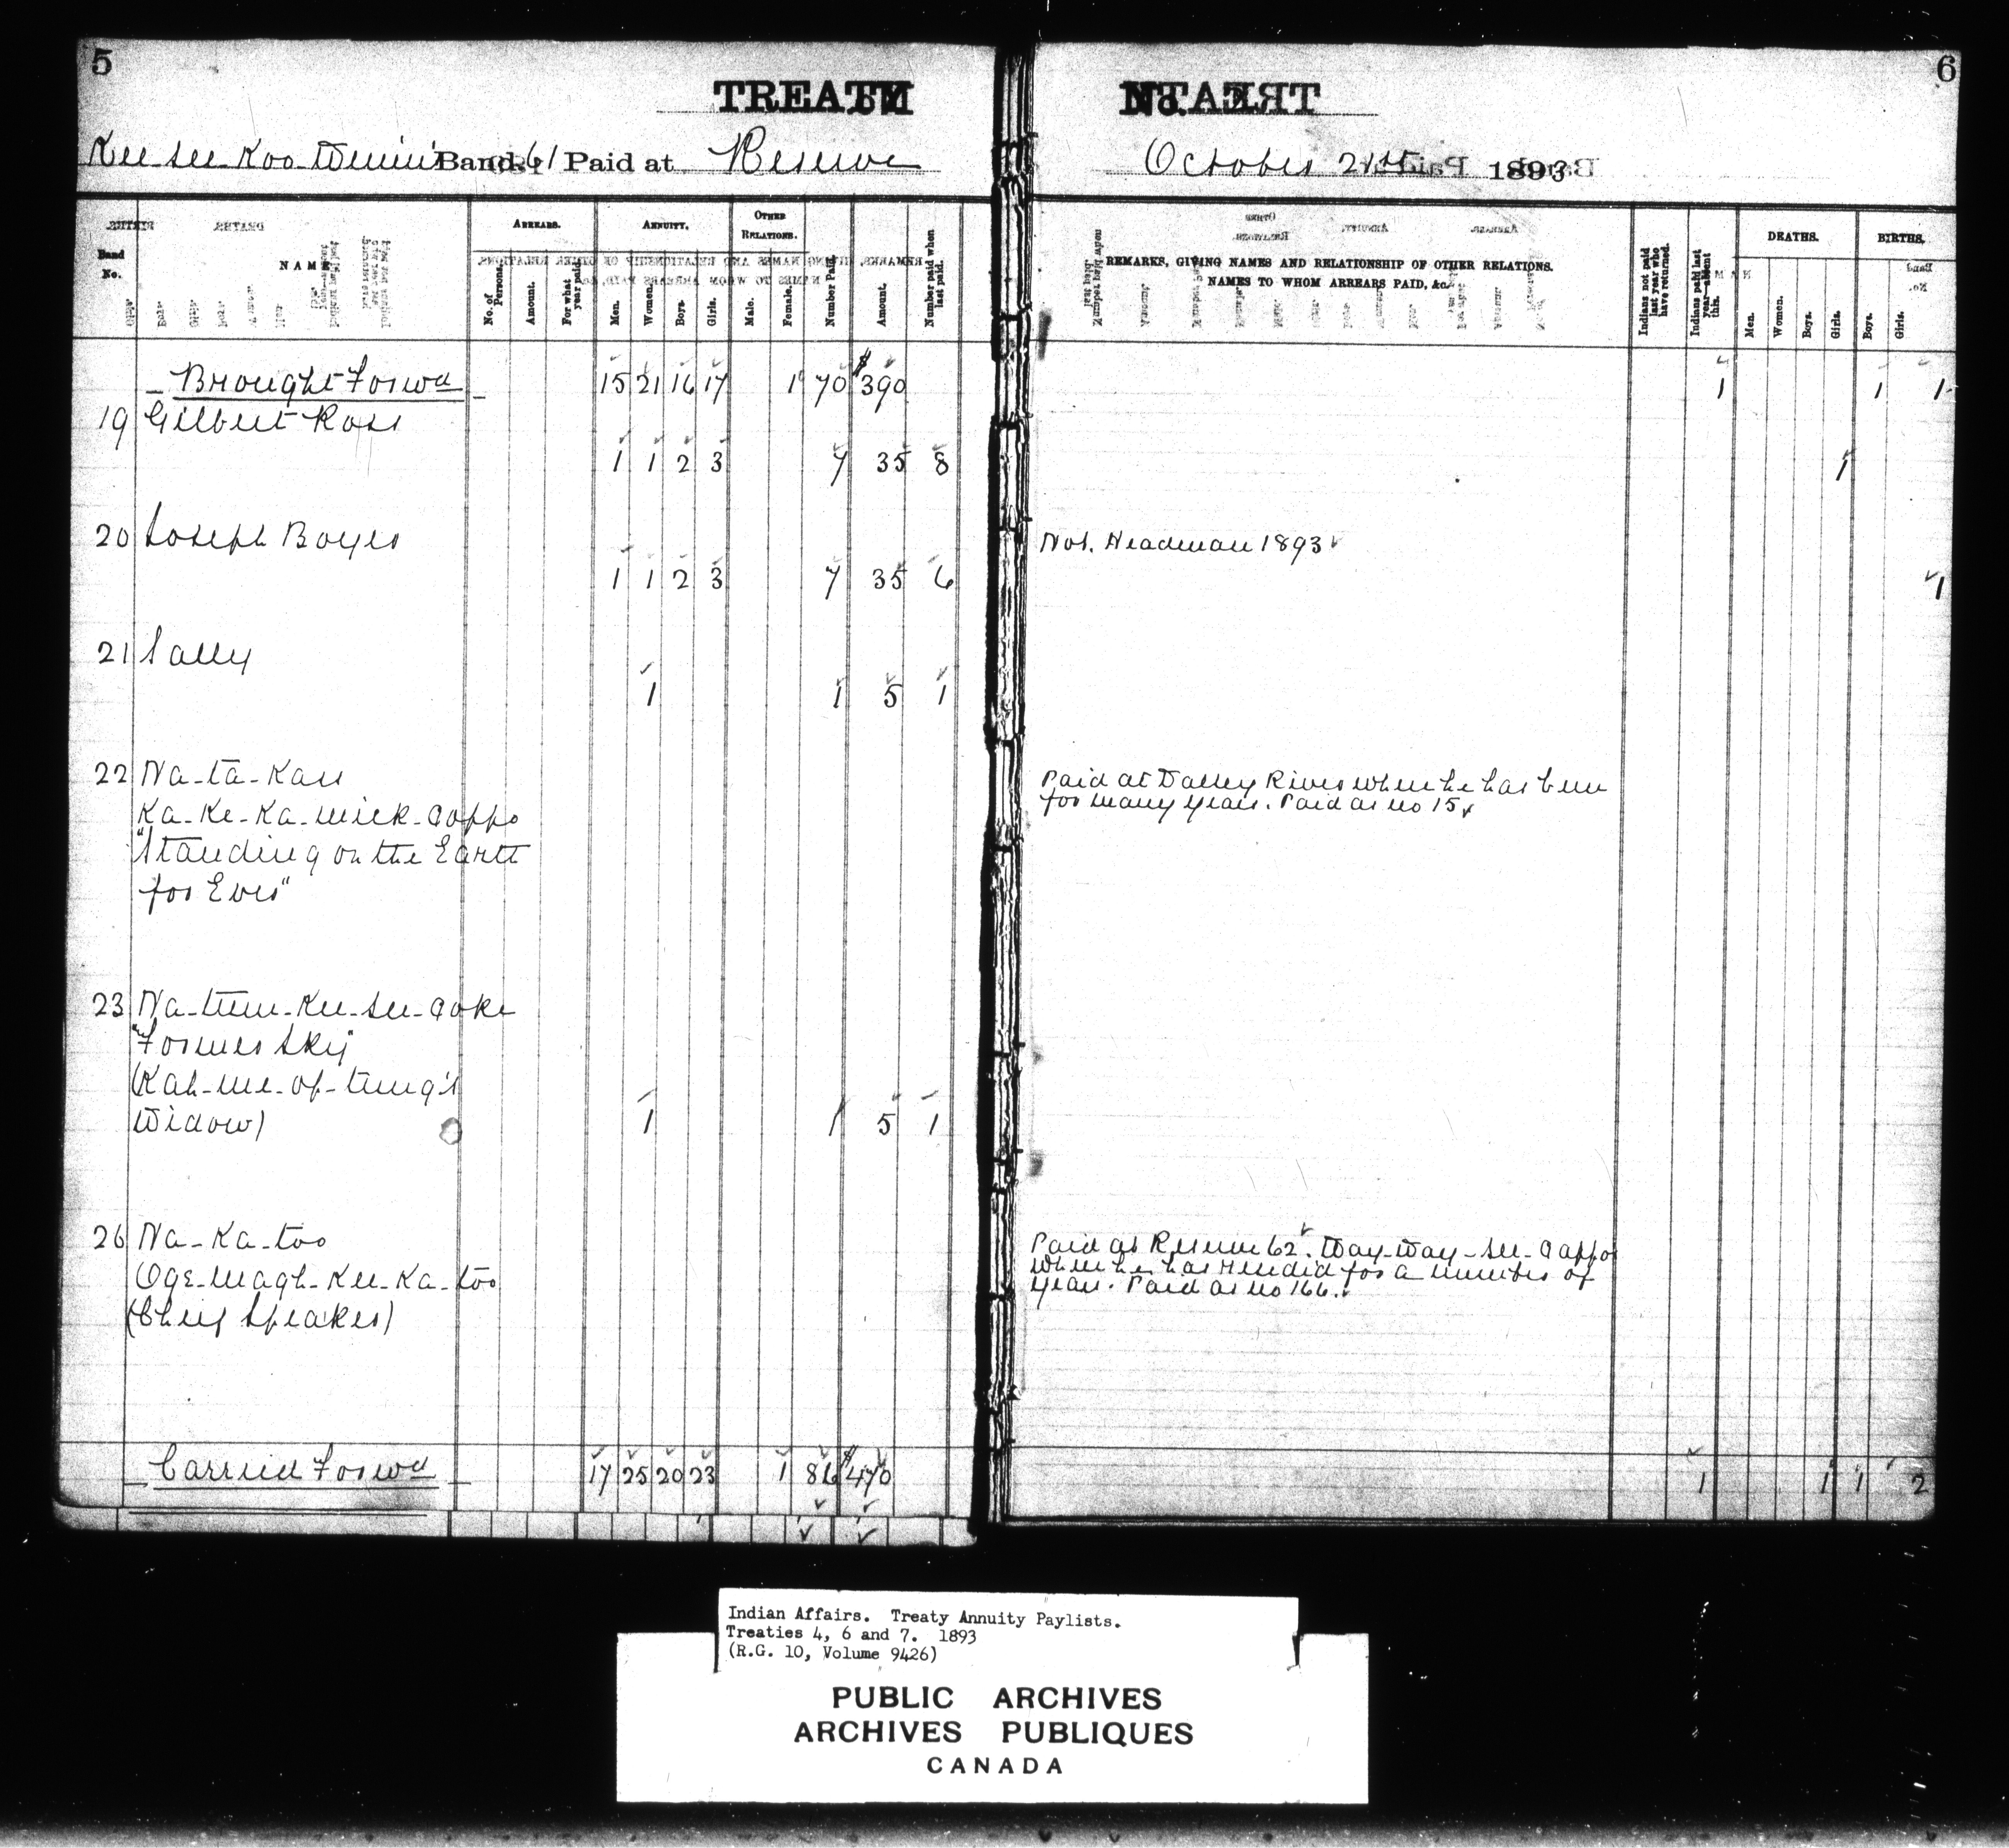 5
TREATY
Kee-see-Koo-Wenin's Band. 61 Paid at Reserve
Band No.
NAME
ARREARS.
No. of Persons.
Amount.
For what year paid.
ANNUITY.
Men.
Women.
Boys.
Girls.
OTHER RELATIONS.
Male.
Female.
Number Paid.
Amount.
Number paid when last paid.
Brought Forwd 15 21 16 17 1 70 $390
19 Gilbert Ross
1 1 2 3 7 35 8
20 Joseph Boyer
1 1 2 3 7 35 6
21 Sally
1 1 5 1
22 Na-ta-Kau
Ka-Ke-Ka-mick-Cappo
"Standing on the Earth
for Ever"
23 Na-tum-Kee-see-Goke
"Former Sky"
(Kah-me-of-tung's
Widow) 1 1 5 1
26 Na-Ka-too
Oge-magh-Kee-Ka-too
(Cheif Speaker)
Carried Forwd 17 25 20 23 1 86 $470
6
No.
October 21st 1893
REMARKS, GIVING NAMES AND RELATIONSHIP OF OTHER RELATIONS.
NAMES TO WHOM ARREARS PAID, &c.
Indians not paid last year who have returned.
Indians paid last year—absent this.
DEATHS.
Men.
Women.
Boys.
Girls.
BIRTHS.
Boys.
Girls.
1 1 1
1
Not. Headman 1893
1
Paid at Valley River where he has been
for many years. Paid as no 15
Paid at Reserve 62. Way-Way-see-Cappo
where he has resided for a number of
years. Paid as no 166.
1 1 1 2
Indian Affairs. Treaty Annuity Paylists.
Treaties 4, 6 and 7. 1893
(R.G. 10, Volume 9426)
PUBLIC ARCHIVES
ARCHIVES PUBLIQUES
CANADA